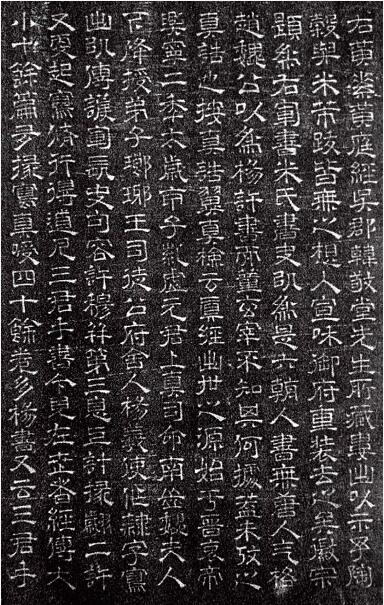 右黃素黃庭經吳郡韓敬堂先生所藏婁出以示予陶
穀與米芾跋皆無之想入宣咊御府重裝去之矣徽宗
題為右軍書米氏書史乃為是六朝人書無唐人气格
趙魏公以為楊許書而董玄宰不知其何據蓋未攷之
真誥也按真誥翼真檢云真經出世之源始于晉哀帝
興寧二年太歲甲子紫虛元君上真司命南嶽魏夫人
下降授弟子瑯琊王司徒公府舍人楊羲使作隸字寫
出以傳護軍長史句容許穆并第三息上計掾翽二許
又更起寫修行得道凡三君手書今見在世者經傳大
小十餘篇多掾寫真授四十餘卷多楊書又云三君手